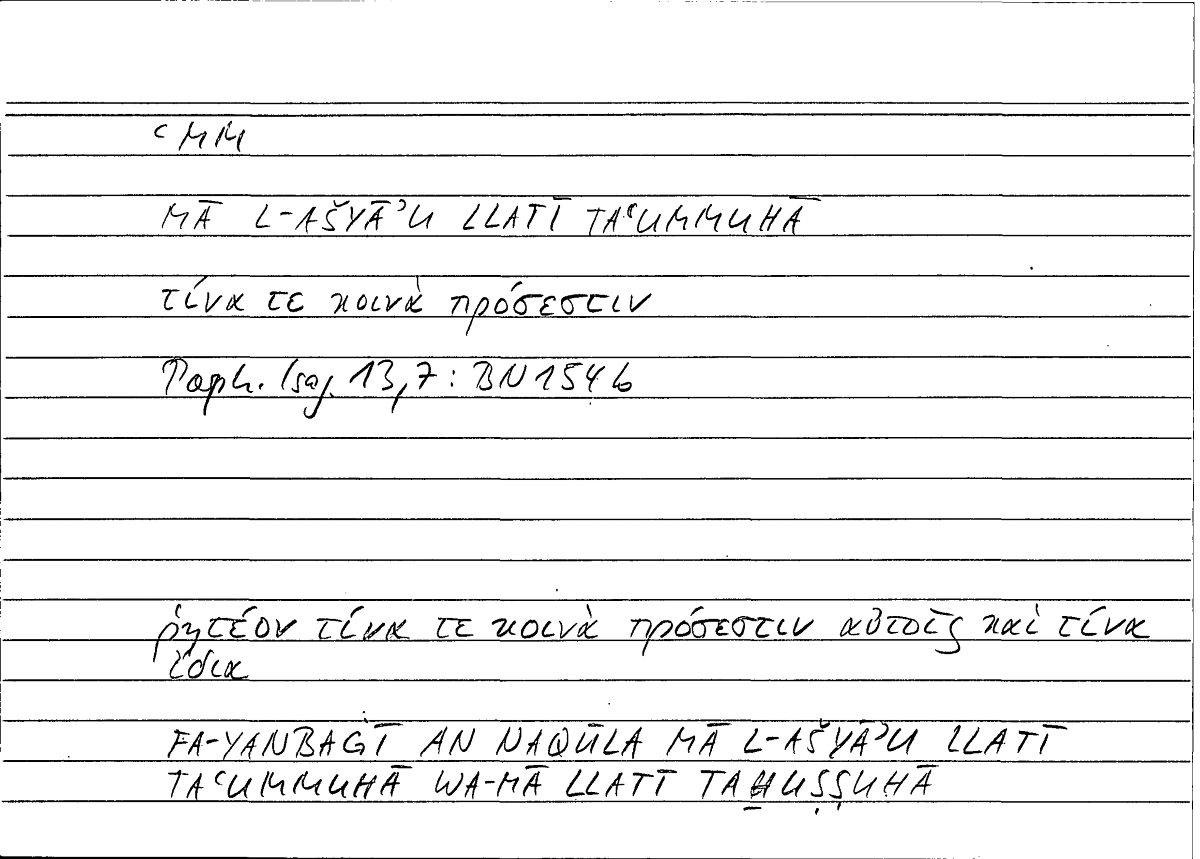 ʿMM
MĀ L-AŠYĀʾU LLATĪ TAʿUMMUHĀ
τίνα τε κοινὰ πρόσεστιν
Porph. Isag. 13,7: BN 154b
ῥητέον τίνα τε κοινὰ πρόσεστιν αὐτοῖς καὶ τίνα
ἴδια
FA-YANBAĠĪ AN NAQŪLA MĀ L-AŠYĀʾU LLATĪ
TAʿUMMUHĀ WA-MĀ LLATĪ TAḪUṢṢUHĀ